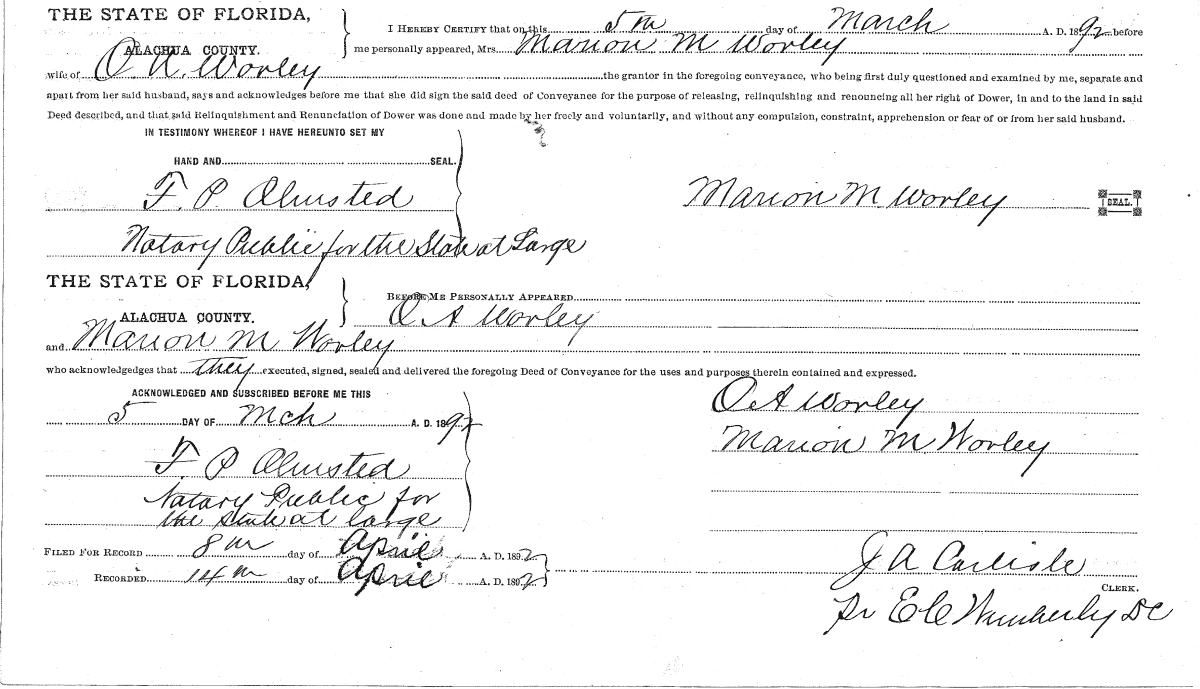 THE STATE OF FLORIDA,
ALACHUA COUNTY.
I HEREBY CERTIFY that on this 5th day of March A. D. 1892 before
me personally appeared, Mrs. Marion M Worley
wife of O. A. Worley the grantor in the foregoing conveyance, who being first duly questioned and examined by me, separate and
apart from her said husband, says and acknowledges before me that she did sign the said deed of Conveyance for the purpose of releasing, relinquishing and renouncing all her right of Dower, in and to the land in said
Deed described, and that said Relinquishment and Renunciation of Dower was done and made by her freely and voluntarily, and without any compulsion, constraint, apprehension or fear of or from her said husband.
IN TESTIMONY WHEREOF I HAVE HEREUNTO SET MY
HAND AND SEAL.
F. P. Olmsted
Marion M. Worley SEAL.
Notary Public for the State at Large
THE STATE OF FLORIDA,
ALACHUA COUNTY.
BEFORE ME PERSONALLY APPEARED
O. A Worley
and Marion M Worley
who acknowledgedges that they executed, signed, sealed and delivered the foregoing Deed of Conveyance for the uses and purposes therein contained and expressed.
ACKNOWLEDGED AND SUBSCRIBED BEFORE ME THIS
5 DAY OF Mch A. D. 1892
O. A Worley
Marion M Worley
F. P Olmsted
Notary Public for
the State at large
FILED FOR RECORD 8th day of April A. D. 1892
RECORDED 14th day of April A. D. 1892
J A Carlisle
CLERK.
Pr E C Wimberly DC